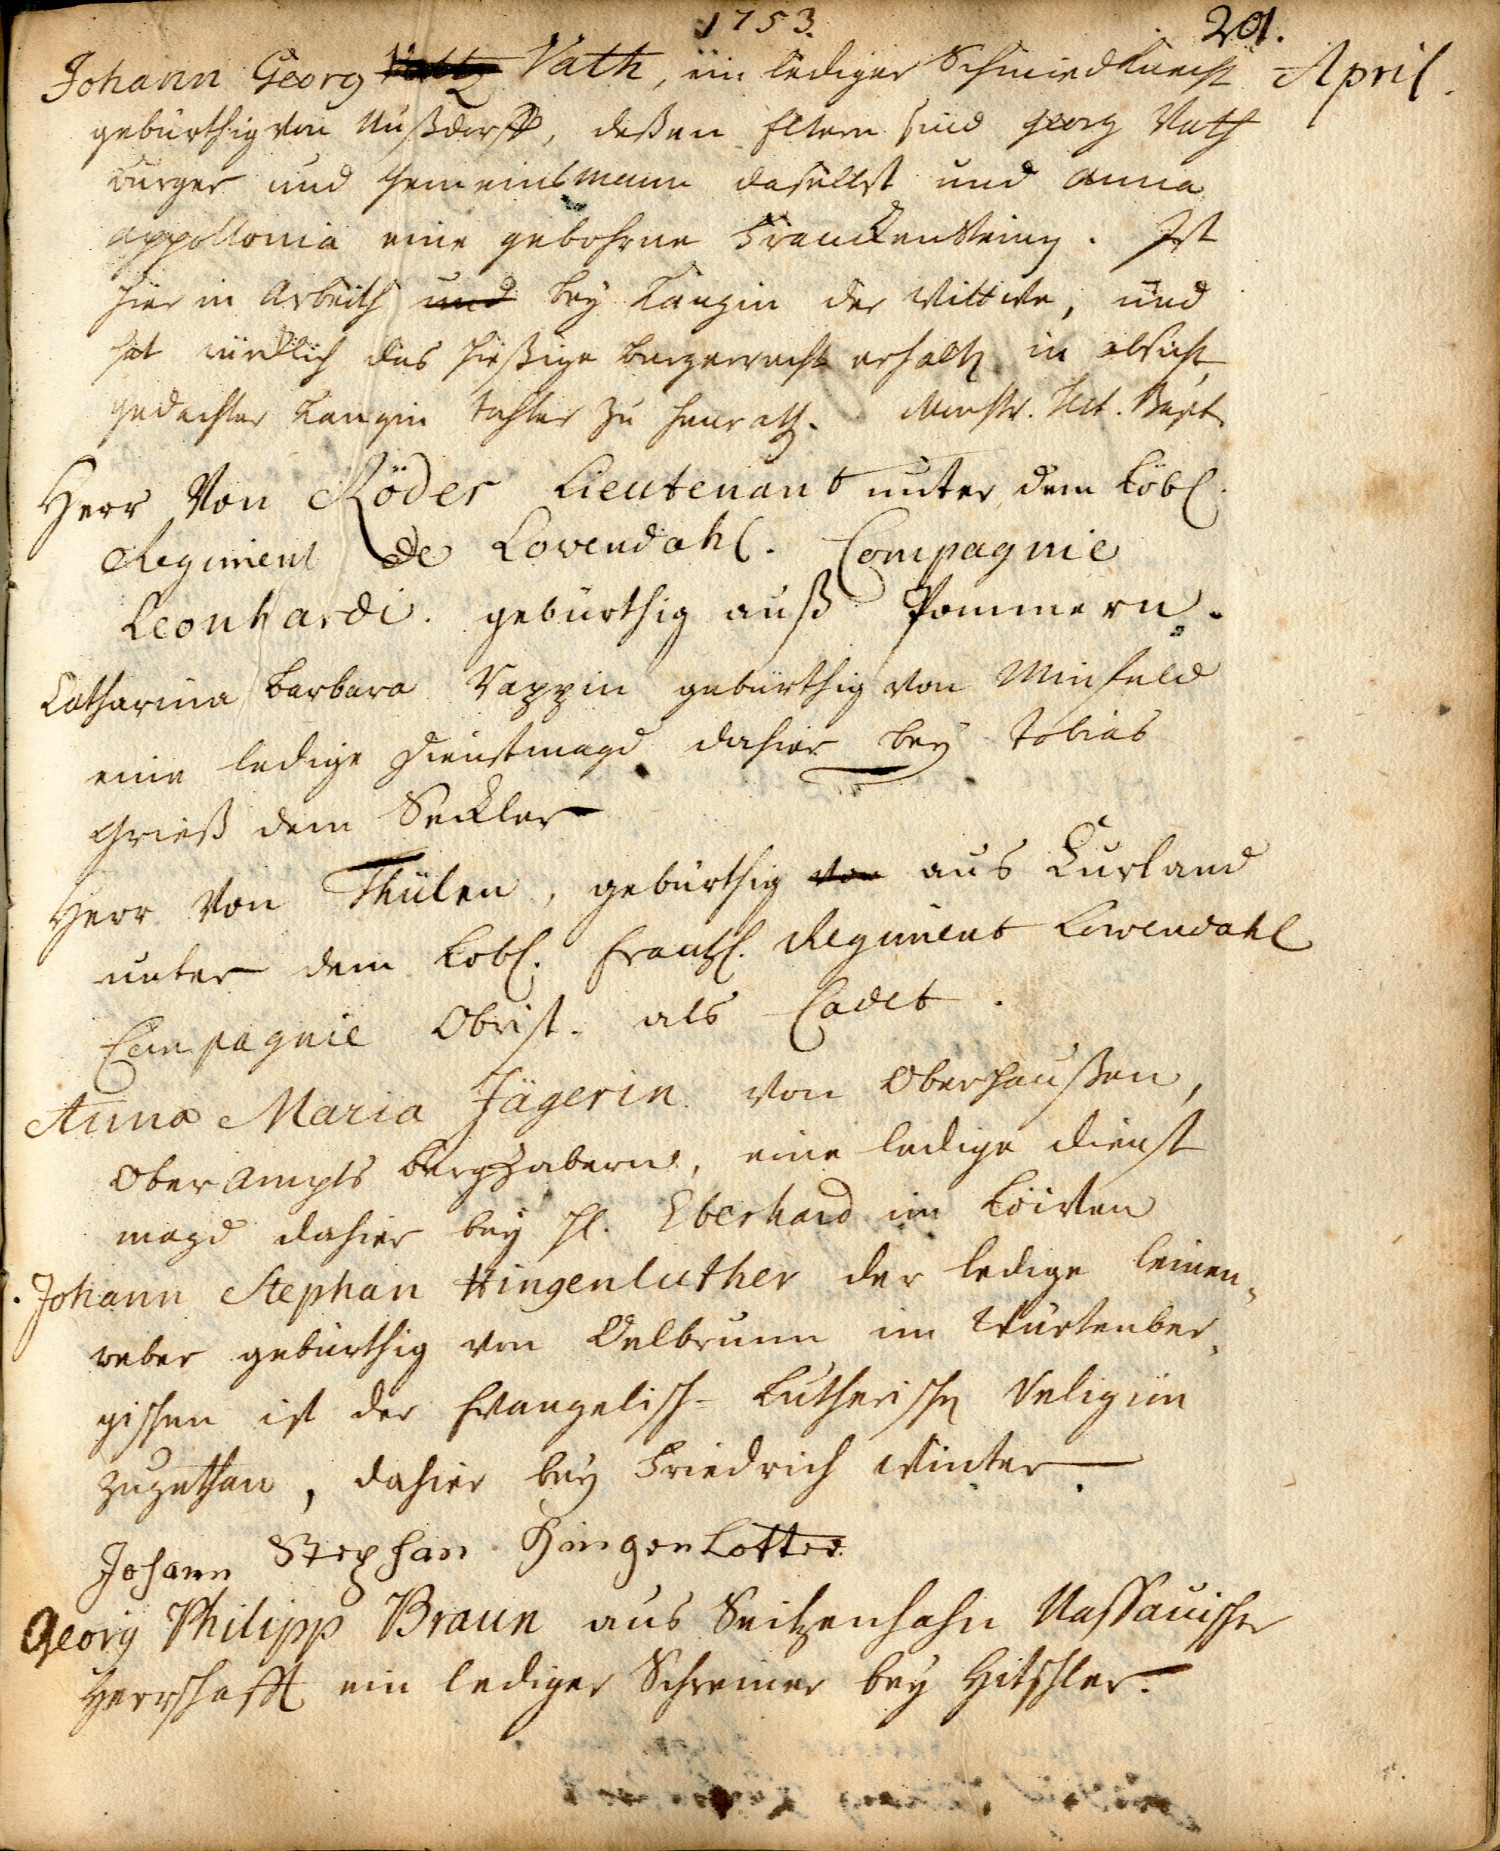 1753. 201.
Johann Georg Vath, ein lediger Schmiedknecht April.
gebürthig von Nußdorff, deßen Eltern sind Georg Vath
burger und Gemeinsmann daselbst und Anna
Appollonia eine gebohrne Franckensteinin. Ist
hier in Arbeith und bey Langin der Wittwe, und
hat würcklich das hießige burgerrecht erhalten in absicht
gedachter Langin tochter zu heurathen.
Herr Von Röder Lieutenant unter dem Löbl.
Regiment de Lovendahl. Compagnie
Leonhardi. gebürthig auß Pommern.
Catharina Barbara Rappin gebürthig von Minfeld
eine ledige Dienstmagd dahier bey Tobias
Grieß dem Seckler
Herr Von Thülen, gebürthig von aus Curland
unter dem Löbl. Frantzl. Regiment Lowendahl
Compagnie Obrist. als Cadet.
Anna Maria Jägerin von Oberhaußen,
Ober Ampts Bergzabern, eine ledige dienst
magd dahier bey H. Eberhard im Löwen
Johann Stephan Hingenluther der ledige leinen-
weber gebürthig von Oelbrunn im Würtenber-
gischen ist der Evangelisch-Lutherischen Religion
zugethan, dahier bey Friedrich Winter.
Johann Stephan Hingenlotter.
Georg Philipp Braun aus Seitzenhahn Naßauischer
Herrschafft ein lediger Schreiner bey Hitschler.